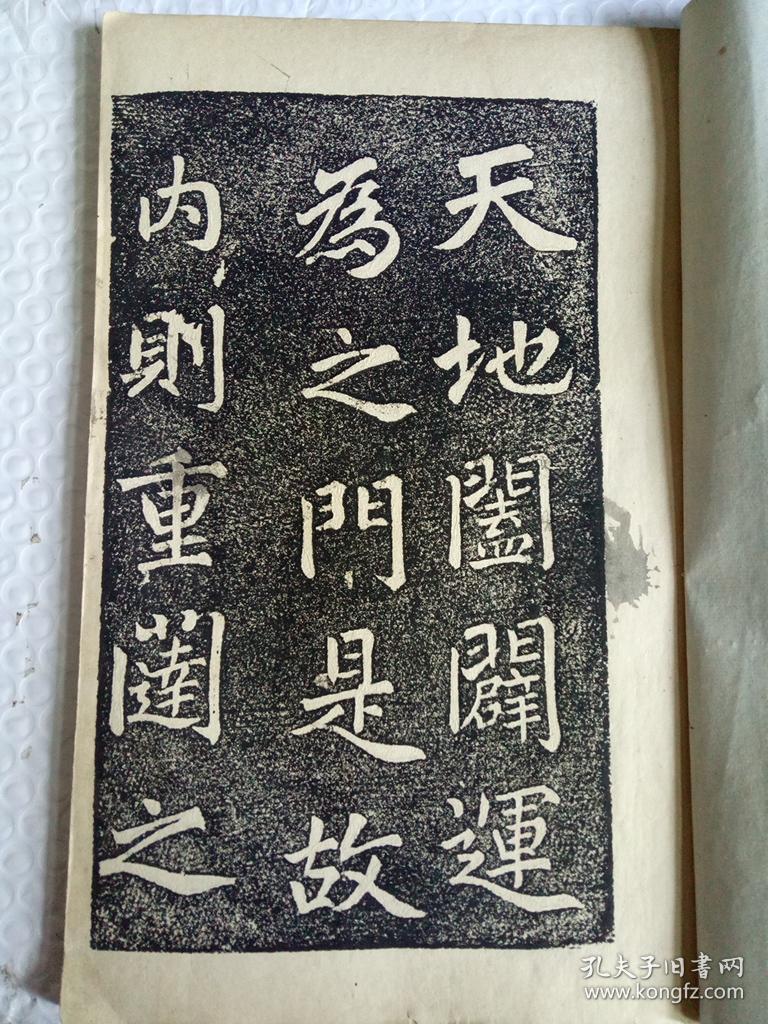 天地闔闢運
為之門是故
內則重闥之
孔夫子旧書网
www.kongfz.com